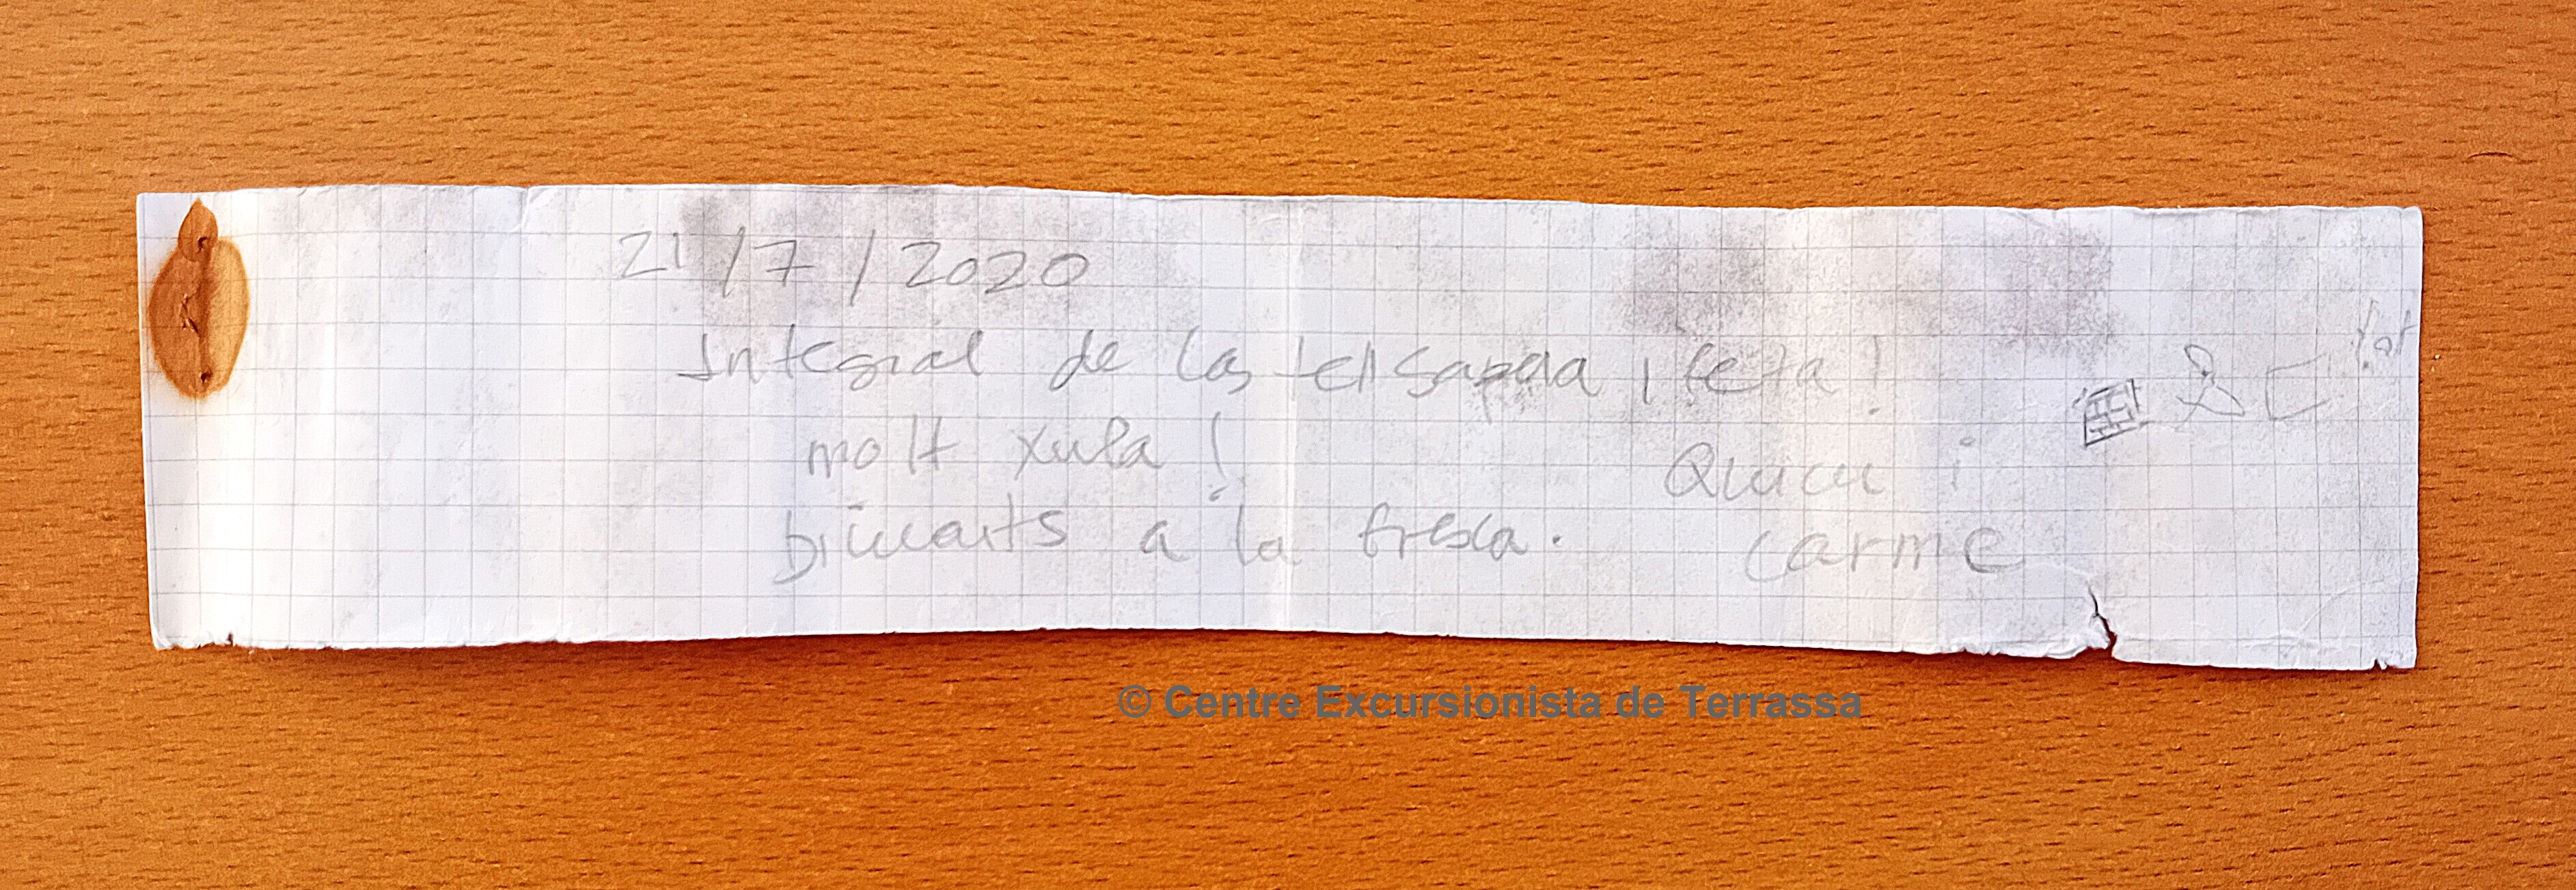 21/7/2020
Integral de Castellsapera ¡feta!
molt xula!
bivacaits a la fresca.
Quicu i
Carme
© Centre Excursionista de Terrassa